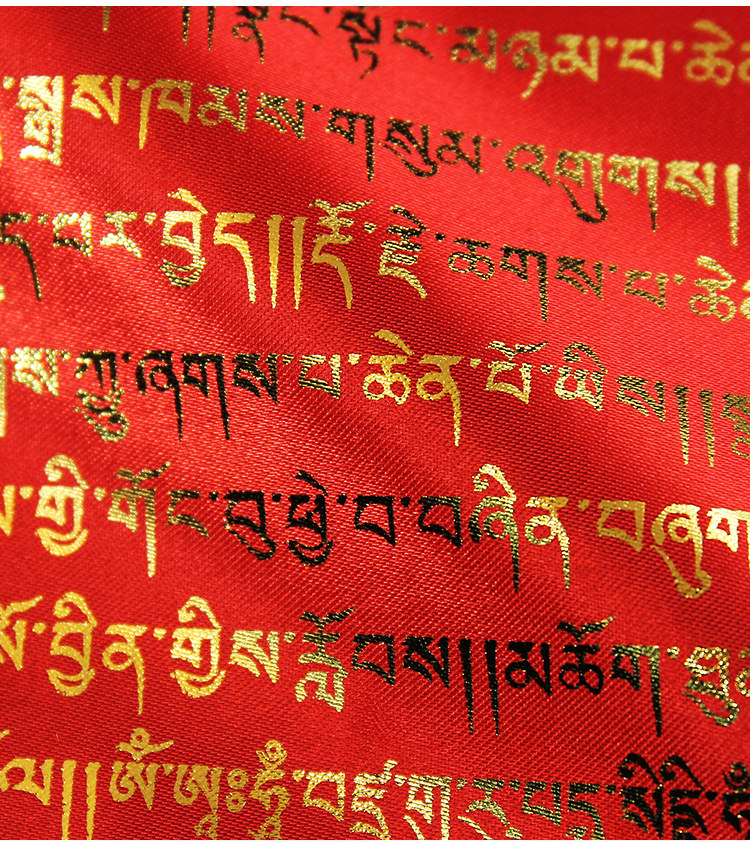 མཉམ་པ་ཆེ
སྒྲས་ཁམས་གསུམ་འགུགས།།
པར་བྱེད།།རྡོ་རྗེ་ཆགས་པ་ཆེ
གས་ཀྱུ་ཞགས་པ་ཆེན་པོ་ཡིས།།
གྱི་གོང་བུ་ཕྱེ་བ་བཞིན་བཞུག
བྱིན་གྱིས་རློབས།།མཆོག་
ལ།།ཨོཾ་ཨཱཿཧཱུྃ་བཛྲ་གུ་རུ་པདྨ་སིདྡྷི་